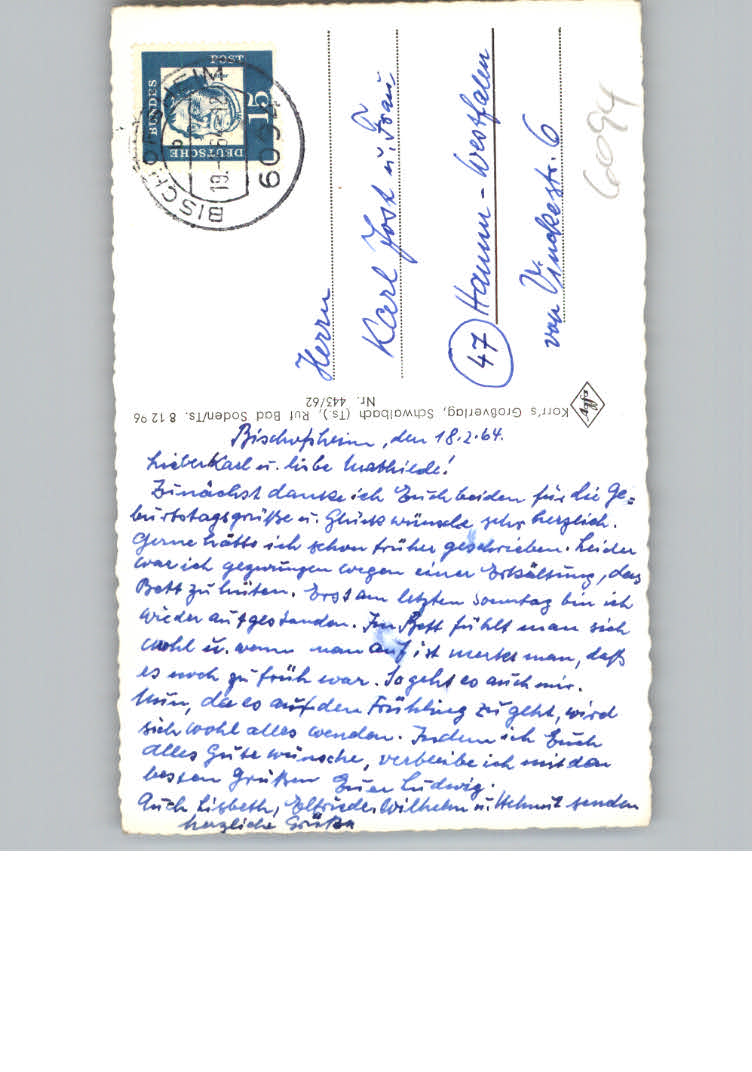 Bischofsheim, den 18.2.64.
Lieber Karl u. liebe Mathilde!
Zunächst danke ich Euch beiden für die Ge=
burtstagsgrüße u. Glückwünsche sehr herzlich.
Gerne hätte ich schon früher geschrieben. Leider
war ich gezwungen wegen einer Erkältung, das
Bett zu hüten. Erst am letzten Sonntag bin ich
wieder aufgestanden. Im Bett fühlt man sich
wohl u. wenn man auf ist merkt man, daß
es noch zu früh war. So geht es auch mir.
Nun, da es auf den Frühling zu geht, wird
sich wohl alles wenden. Indem ich Euch
alles Gute wünsche, verbleibe ich mit den
besten Grüßen Euer Ludwig.
Auch Lisbeth, Elfriede, Wilhelm u. Helmut senden
herzliche Grüße
Herrn
Karl Jost u. Frau
47 Hamm-Westfalen
von Vinckestr. 6
6094
Korr's Großverlag, Schwalbach (Ts.), Ruf Bad Soden/Ts. 8 12 96
Nr. 443/62
DEUTSCHE
BUNDES
POST
15
6094 BISCHOFSHEIM